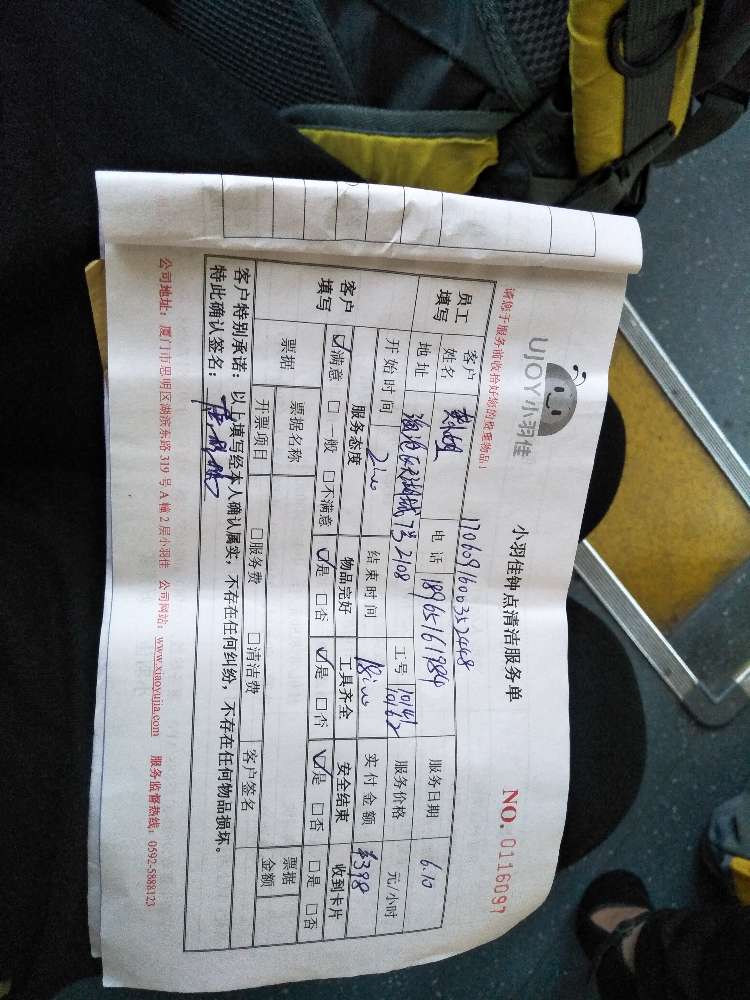 UJOY小羽佳
小羽佳钟点清洁服务单
NO. 0116097
请您于服务前收拾好您的贵重物品！
1706091600352448
员工填写 客户姓名 电话 18965161984 服务日期 6.10
地址 7号2108 工号 服务价格 元/小时
开始时间 结束时间 实付金额 ¥398
客户填写 服务态度 物品完好 工具齐全 安全结束 收到卡片
☑满意 □一般 □不满意 ☑是 □否 ☑是 □否 ☑是 □否 □是 □否
票据 票据名称 票据金额
开票项目 □服务费 □清洁费 客户签名
客户特别承诺：以上填写经本人确认属实，不存在任何纠纷，不存在任何物品损坏。
特此确认签名：
公司地址：厦门市思明区湖滨东路 319 号 A 幢 2 层小羽佳 公司网站：www.xiaoyujia.com 服务监督热线：0592-5888123